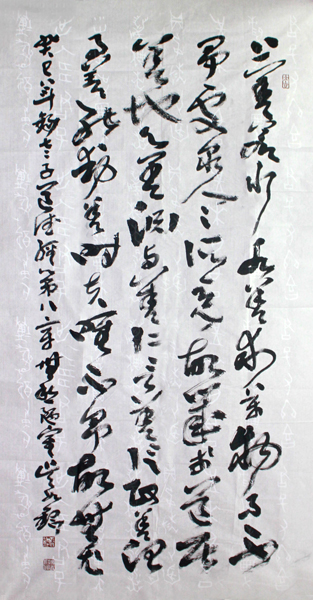 上善若水水善利万物而不
争處衆人之所惡故幾於道居
善地心善渊与善仁言善信政善治
事善能動善时夫唯不争故無尤
癸巳年鈔老子道德經第八章於陋室